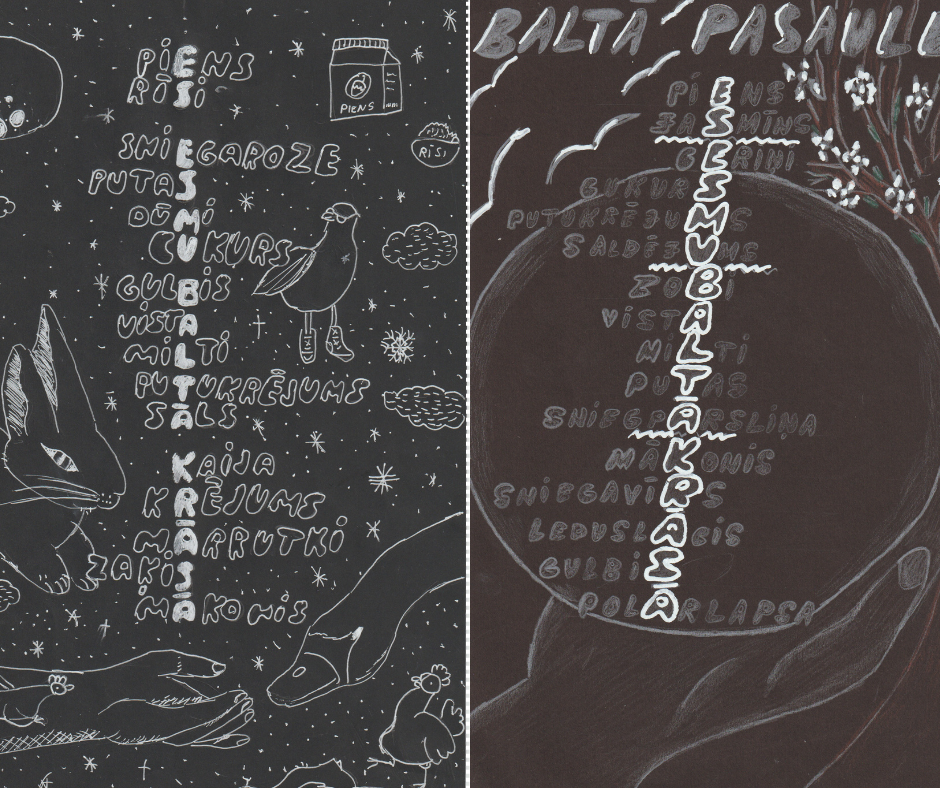 PIENS
RĪSI
SNIEGAROZE
PUTAS
DŪMI
CUKURS
GULBIS
VISTA
MILTI
PUTUKRĒJUMS
SĀLS
KAIJA
KRĒJUMS
MĀRRUTKI
ZAĶIS
MĀKONIS
PIENS
RĪSI
BALTĀ PASAULE
PIENS
JASMĪNS
CUKURS
PUTUKRĒJUMS
SALDĒJUMS
ZOBI
VISTA
MILTI
PUTAS
SNIEGPĀRSLIŅA
MĀKONIS
SNIEGAVĪRS
LEDUSLĀCIS
GULBIS
POLĀRLAPSA